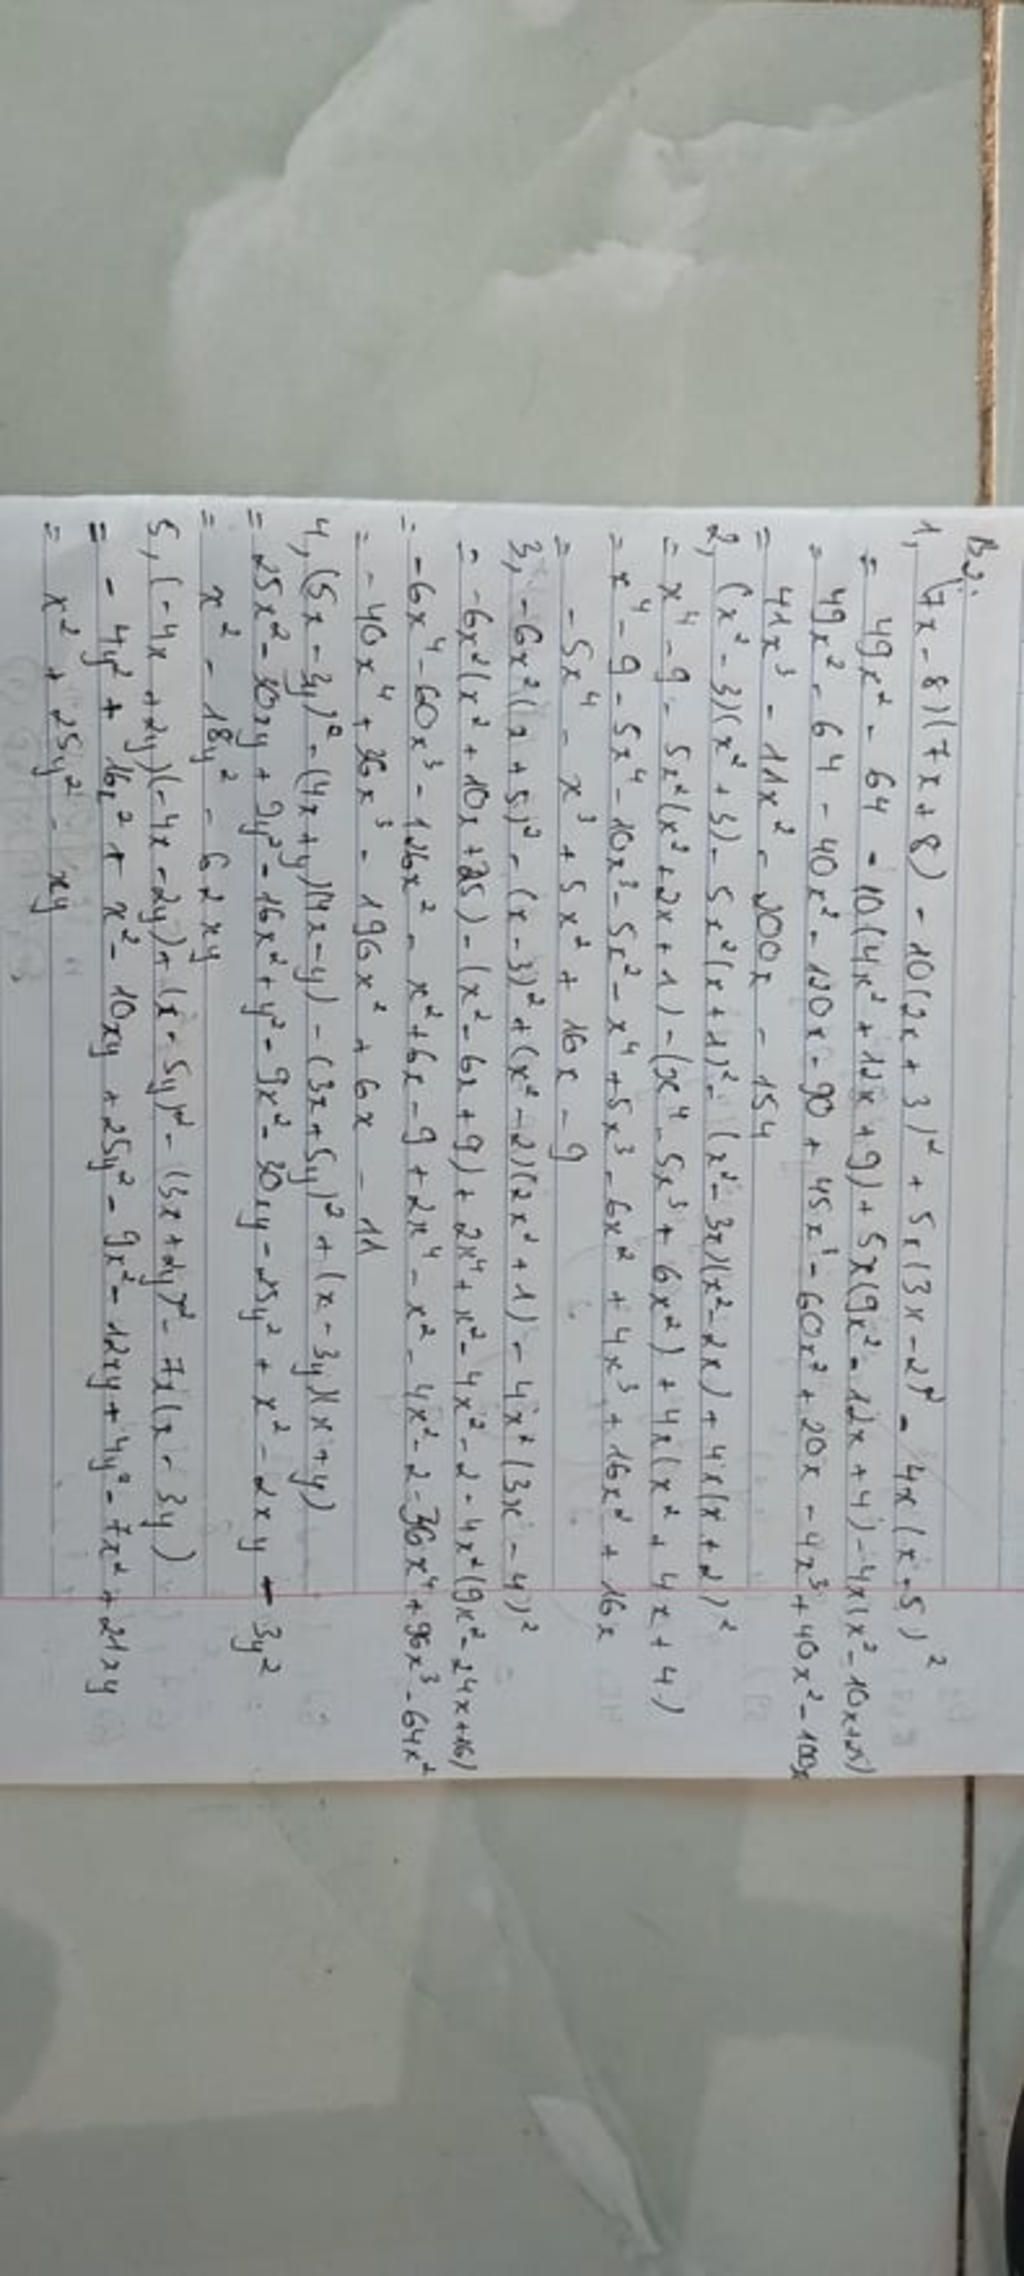 B3:
1, (7x-8)(7x+8) - 10(2x+3)² + 5x(3x-2)² - 4x(x-5)²
= 49x² - 64 - 10(4x² + 12x + 9) + 5x(9x² - 12x + 4) - 4x(x² - 10x+25)
= 49x² - 64 - 40x² - 120x - 90 + 45x³ - 60x² + 20x - 4x³ + 40x² - 100x
= 41x³ - 11x² - 200x - 154
2, (x² - 3)(x² + 3) - 5x²(x + 1)² - (x² - 3x)(x² - 2x) + 4x(x + 2)²
= x⁴ - 9 - 5x²(x² + 2x + 1) - (x⁴ - 5x³ + 6x²) + 4x(x² + 4x + 4)
= x⁴ - 9 - 5x⁴ - 10x³ - 5x² - x⁴ + 5x³ - 6x² + 4x³ + 16x² + 16x
= -5x⁴ - x³ + 5x² + 16x - 9
3, -6x²(x + 5)² - (x - 3)² + (x² - 2)(2x² + 1) - 4x²(3x - 4)²
= -6x²(x² + 10x + 25) - (x² - 6x + 9) + 2x⁴ + x² - 4x² - 2 - 4x²(9x² - 24x+16)
= -6x⁴ - 60x³ - 126x² - x² + 6x - 9 + 2x⁴ - x² - 4x² - 2 - 36x⁴ + 96x³ - 64x²
= -40x⁴ + 36x³ - 196x² + 6x - 11
4, (5x - 3y)² - (4x + y)(4x - y) - (3x + 5y)² + (x - 3y)(x + y)
= 25x² - 30xy + 9y² - 16x² + y² - 9x² - 30xy - 25y² + x² - 2xy - 3y²
= x² - 18y² - 62xy
5, (-4x + 2y)(-4x - 2y) + (x - 5y)² - (3x + 2y)² - 7x(x - 3y)
= - 4y² + 16x² + x² - 10xy + 25y² - 9x² - 12xy + 4y² - 7x² + 21xy
= x² + 25y² - xy